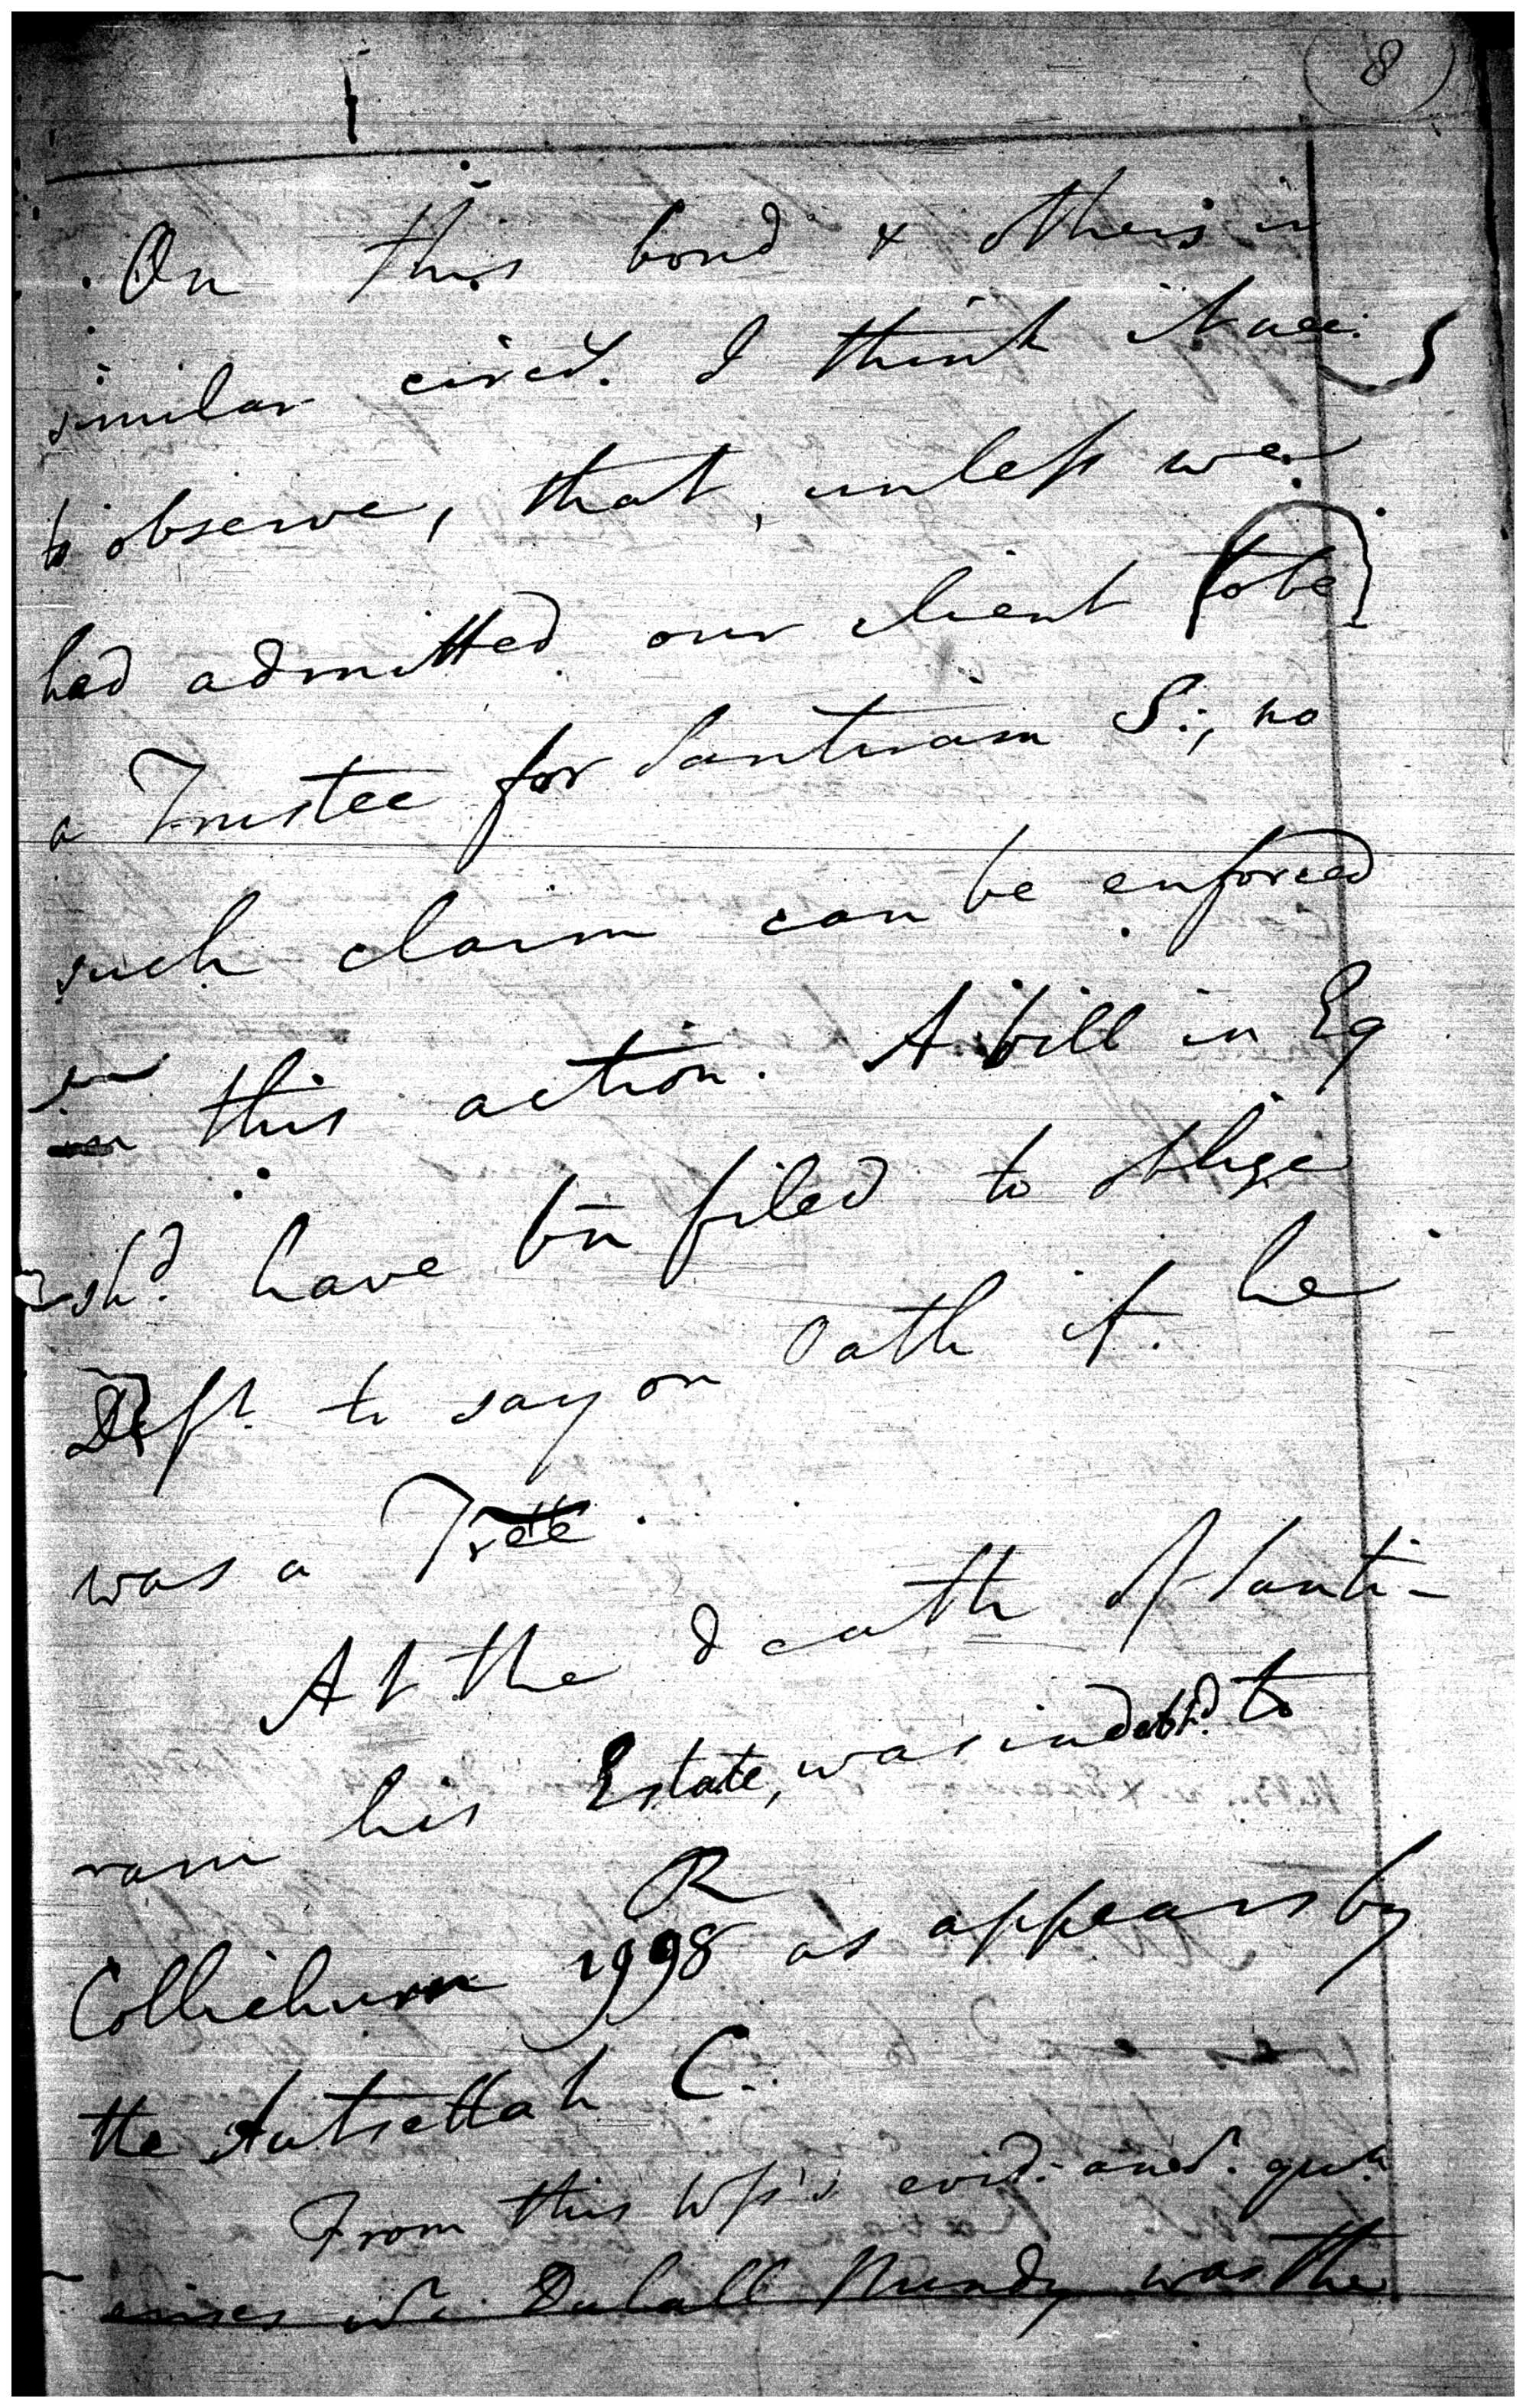 8
On this bond & others in
similar circs. I think it nec:
to observe, that, unless we
had admitted our client (to be)
a Trustee for Santiram S:, no
such claim can be enforced
in this action. A bill in Eq
shd. have bn filed to oblige
Deft. to say on Oath if he
was a Tree.
At the death of Santi-
ram his Estate, was indebtd. to
Collichurn R 1998 as appears by
the Autsettah C.
From this Wss's evid: and. qun.
arises wr. Dulall Nundy was the